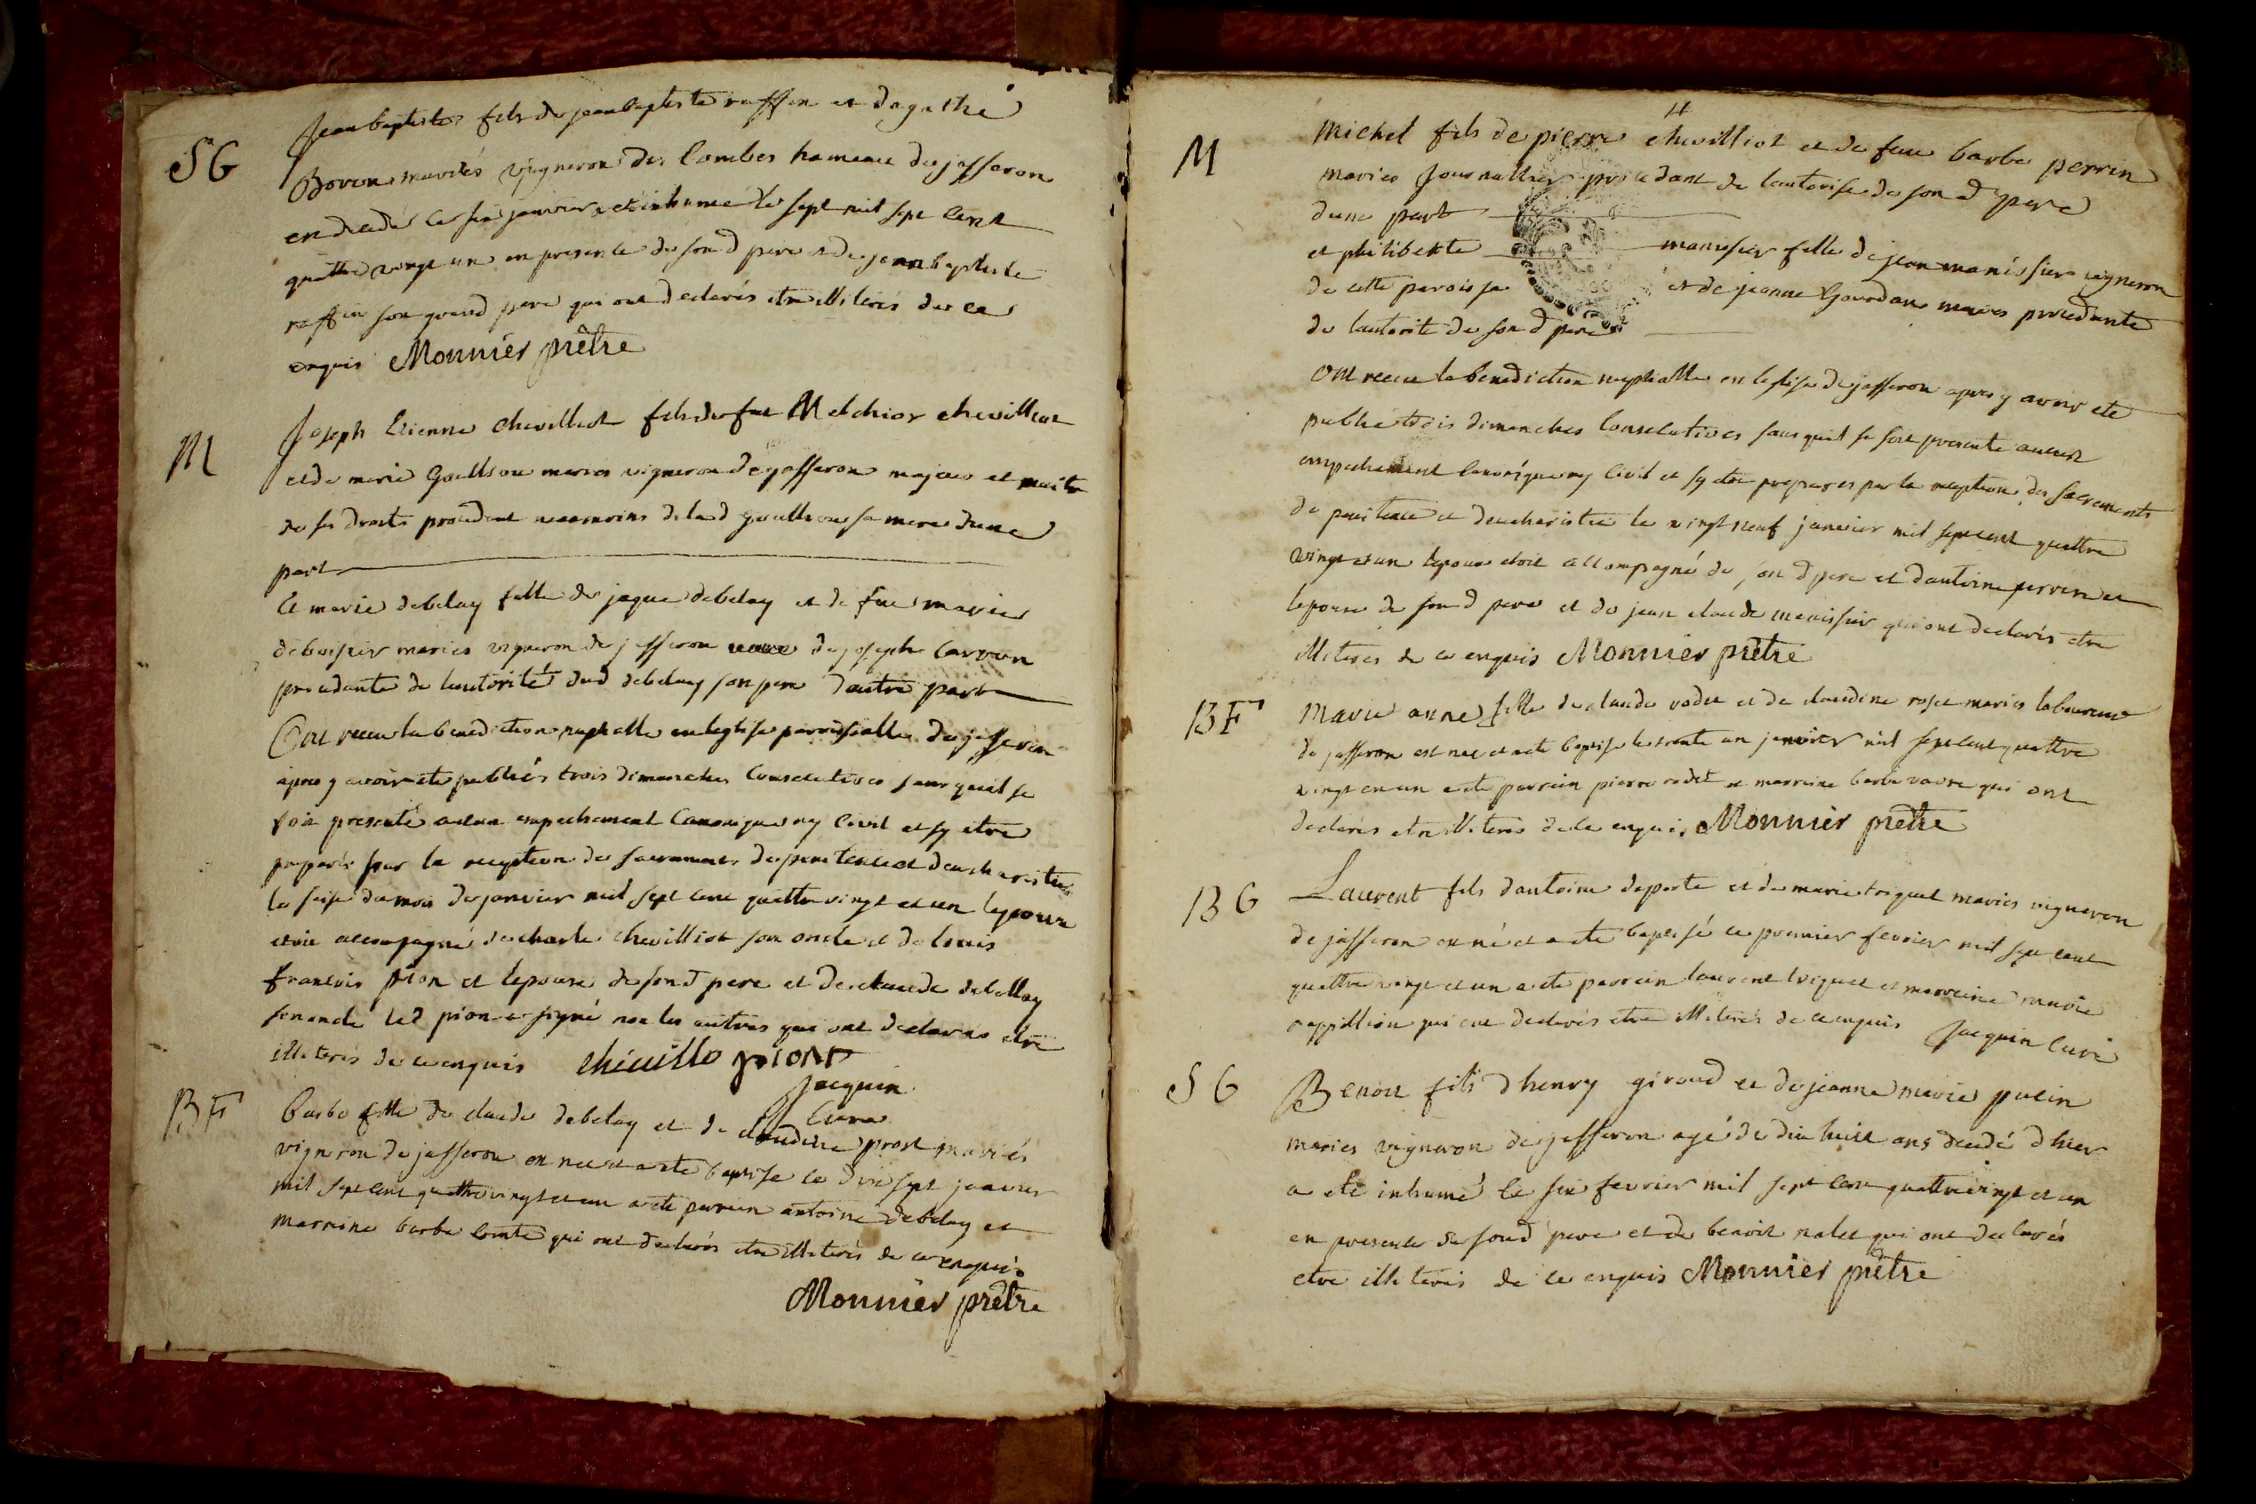 SG
Jean baptiste fils de jean baptiste raffin et dagathe
Boron mariés vigneron des Combes hameau de jasseron
en décédé le six janvier et inhumé le sept mil sept cent
quattre vingt un en presence de son d pere et de jean baptiste
raffin son grand pere qui ont declarés etre illiterés de ce
enquis Monnier prêtre
M
Joseph Etienne chevilliot fils de feu Melchior chevilliot
et de marie mariés vigneron de jasseron majeur et maitre
de ses droits procedant neanmoins de lad sa mere dune
part
Et marie debelay fille de jaque debelay et de feue marie
deboissier mariés vigneron de jasseron veuve de joseph carron
procedante de lautorité dud debelay son pere dautre part
Ont receu la benediction nuptialle en leglise parroissialle de jasseron
apres y avoir eté publiés trois dimanches Consecutives sans quil se
soit presenté aucun empechement Canonique ny Civil et sy etre
preparés par la reception des sacrements de penitence et deucharistie
le seise du mois de janvier mil sept cent quattre vingt et un lepoux
etoit accompagné de charle chevilliot son oncle et de louis
francois pion et lepouse de son d pere et de claude debellay
son oncle led pion a signé non les autres qui ont declarés etre
illiterés de ce enquis chevillo pion
Jacquin
Curé
BF
Barbe fille de claude debelay et de claudine prost mariés
vigneron de jasseron est nee et a eté baptisé le dix sept janvier
mil sept cent quattre vingt et un a eté parrain antoine debelay et
marraine barbe comte qui ont declarés etre illiterés de ce enquis
Monnier prêtre
4
M
Michel fils de pierre chevilliot et de feue barbe perrin
mariés Journallier procedant de lautorise de son d pere
dune part
et philiberte manissier fille de jean manissier vigneron
de cette paroisse et de jeanne Gourdan mariés procedante
de lautorité de son d pere
Ont receu la benediction nuptialle en leglise de jasseron apres y avoir eté
publié trois dimanches Consecutives sans quil se soit presenté aucun
empechement Canonique ny Civil et sy etre preparés par la reception des sacrements
de penitence et deucharistie le vingt neuf janvier mil sept cent quattre
vingt et un lepoux etoit accompagné de son d pere et dantoine perrin et
lepouse de son d pere et de jean claude manissier qui ont declarés etre
illiterés de ce enquis Monnier prêtre
BF
Marie anne fille de claude rodet et de claudine rose mariés laboureur
de jasseron est nee et a eté baptisé le trente un janvier mil sept cent quattre
vingt et un a eté parrain pierre rodet et marraine barbe qui ont
declarés etre illiterés de ce enquis Monnier prêtre
BG
Laurent fils dantoine deporte et de marie triquet mariés vigneron
de jasseron est né et a eté baptisé le premier fevrier mil sept cent
quattre vingt et un a eté parrain laurent triquet et marraine marie
papillion qui ont declarés etre illiterés de ce enquis Jacquin Curé
SG
Benoit fils dhenry giroud et de jeanne marie putin
mariés vigneron de jasseron agé de dix huit ans décédé dhier
a eté inhumé le six fevrier mil sept cent quattre vingt et un
en presence de son d pere et de benoit nalet qui ont declarés
etre illiterés de ce enquis Monnier prêtre